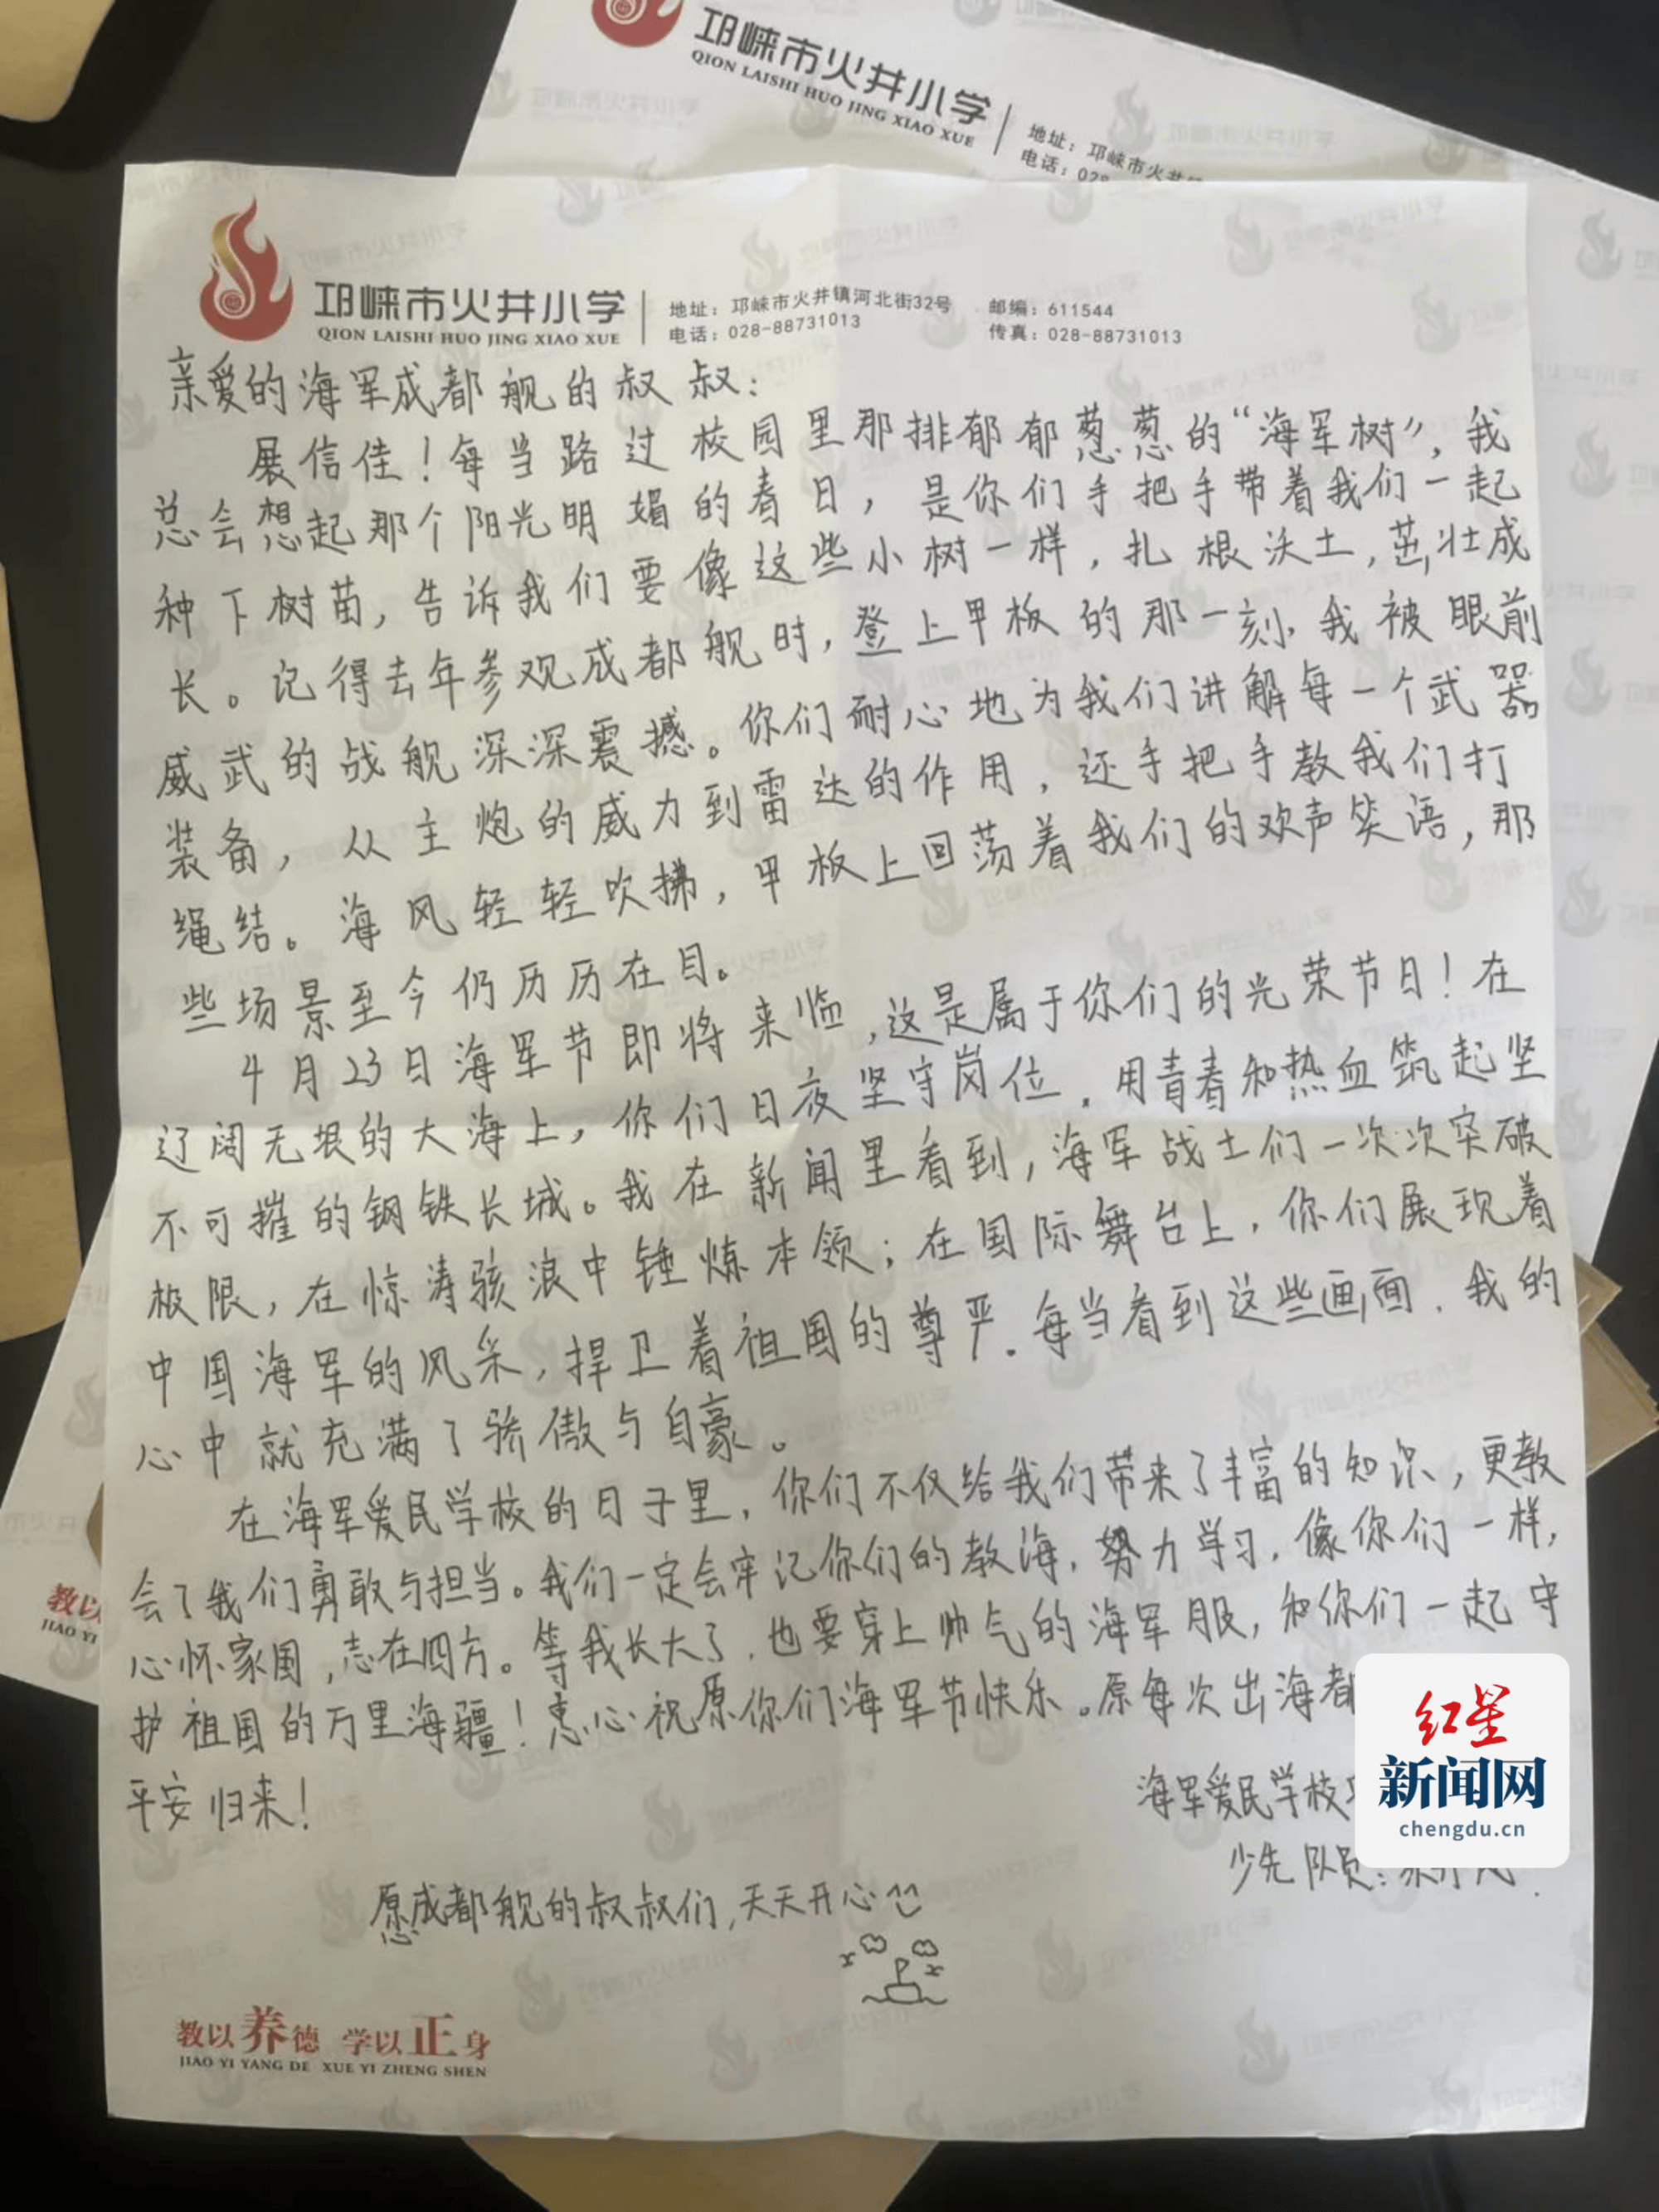 邛崃市火井小学
QION LAISHI HUO JING XIAO XUE
地址：邛崃市火井
电话：028
邛崃市火井小学
QION LAISHI HUO JING XIAO XUE
地址：邛崃市火井镇河北街32号 邮编：611544
电话：028-88731013 传真：028-88731013
亲爱的海军成都舰的叔叔：
展信佳！每当路过校园里那排郁郁葱葱的“海军树”，我
总会想起那个阳光明媚的春日，是你们手把手带着我们一起
种下树苗，告诉我们要像这些小树一样，扎根沃土，茁壮成
长。记得去年参观成都舰时，登上甲板的那一刻，我被眼前
威武的战舰深深震撼。你们耐心地为我们讲解每一个武器
装备，从主炮的威力到雷达的作用，还手把手教我们打
绳结。海风轻轻吹拂，甲板上回荡着我们的欢声笑语，那
些场景至今仍历历在目。
4月23日海军节即将来临，这是属于你们的光荣节日！在
辽阔无垠的大海上，你们日夜坚守岗位，用青春和热血筑起坚
不可摧的钢铁长城。我在新闻里看到，海军战士们一次次突破
极限，在惊涛骇浪中锤炼本领；在国际舞台上，你们展现着
中国海军的风采，捍卫着祖国的尊严。每当看到这些画面，我的
心中就充满了骄傲与自豪。
在海军爱民学校的日子里，你们不仅给我们带来了丰富的知识，更教
会了我们勇敢与担当。我们一定会牢记你们的教海，努力学习，像你们一样，
心怀家国，志在四方。等我长大了，也要穿上帅气的海军服，和你们一起守
护祖国的万里海疆！衷心祝原你们海军节快乐。原每次出海都
平安归来！
海军爱民学校
少先队员：
愿成都舰的叔叔们，天天开心
教以养德 学以正身
JIAO YI YANG DE XUE YI ZHENG SHEN
教以
JIAO YI
红星
新闻网
chengdu.cn